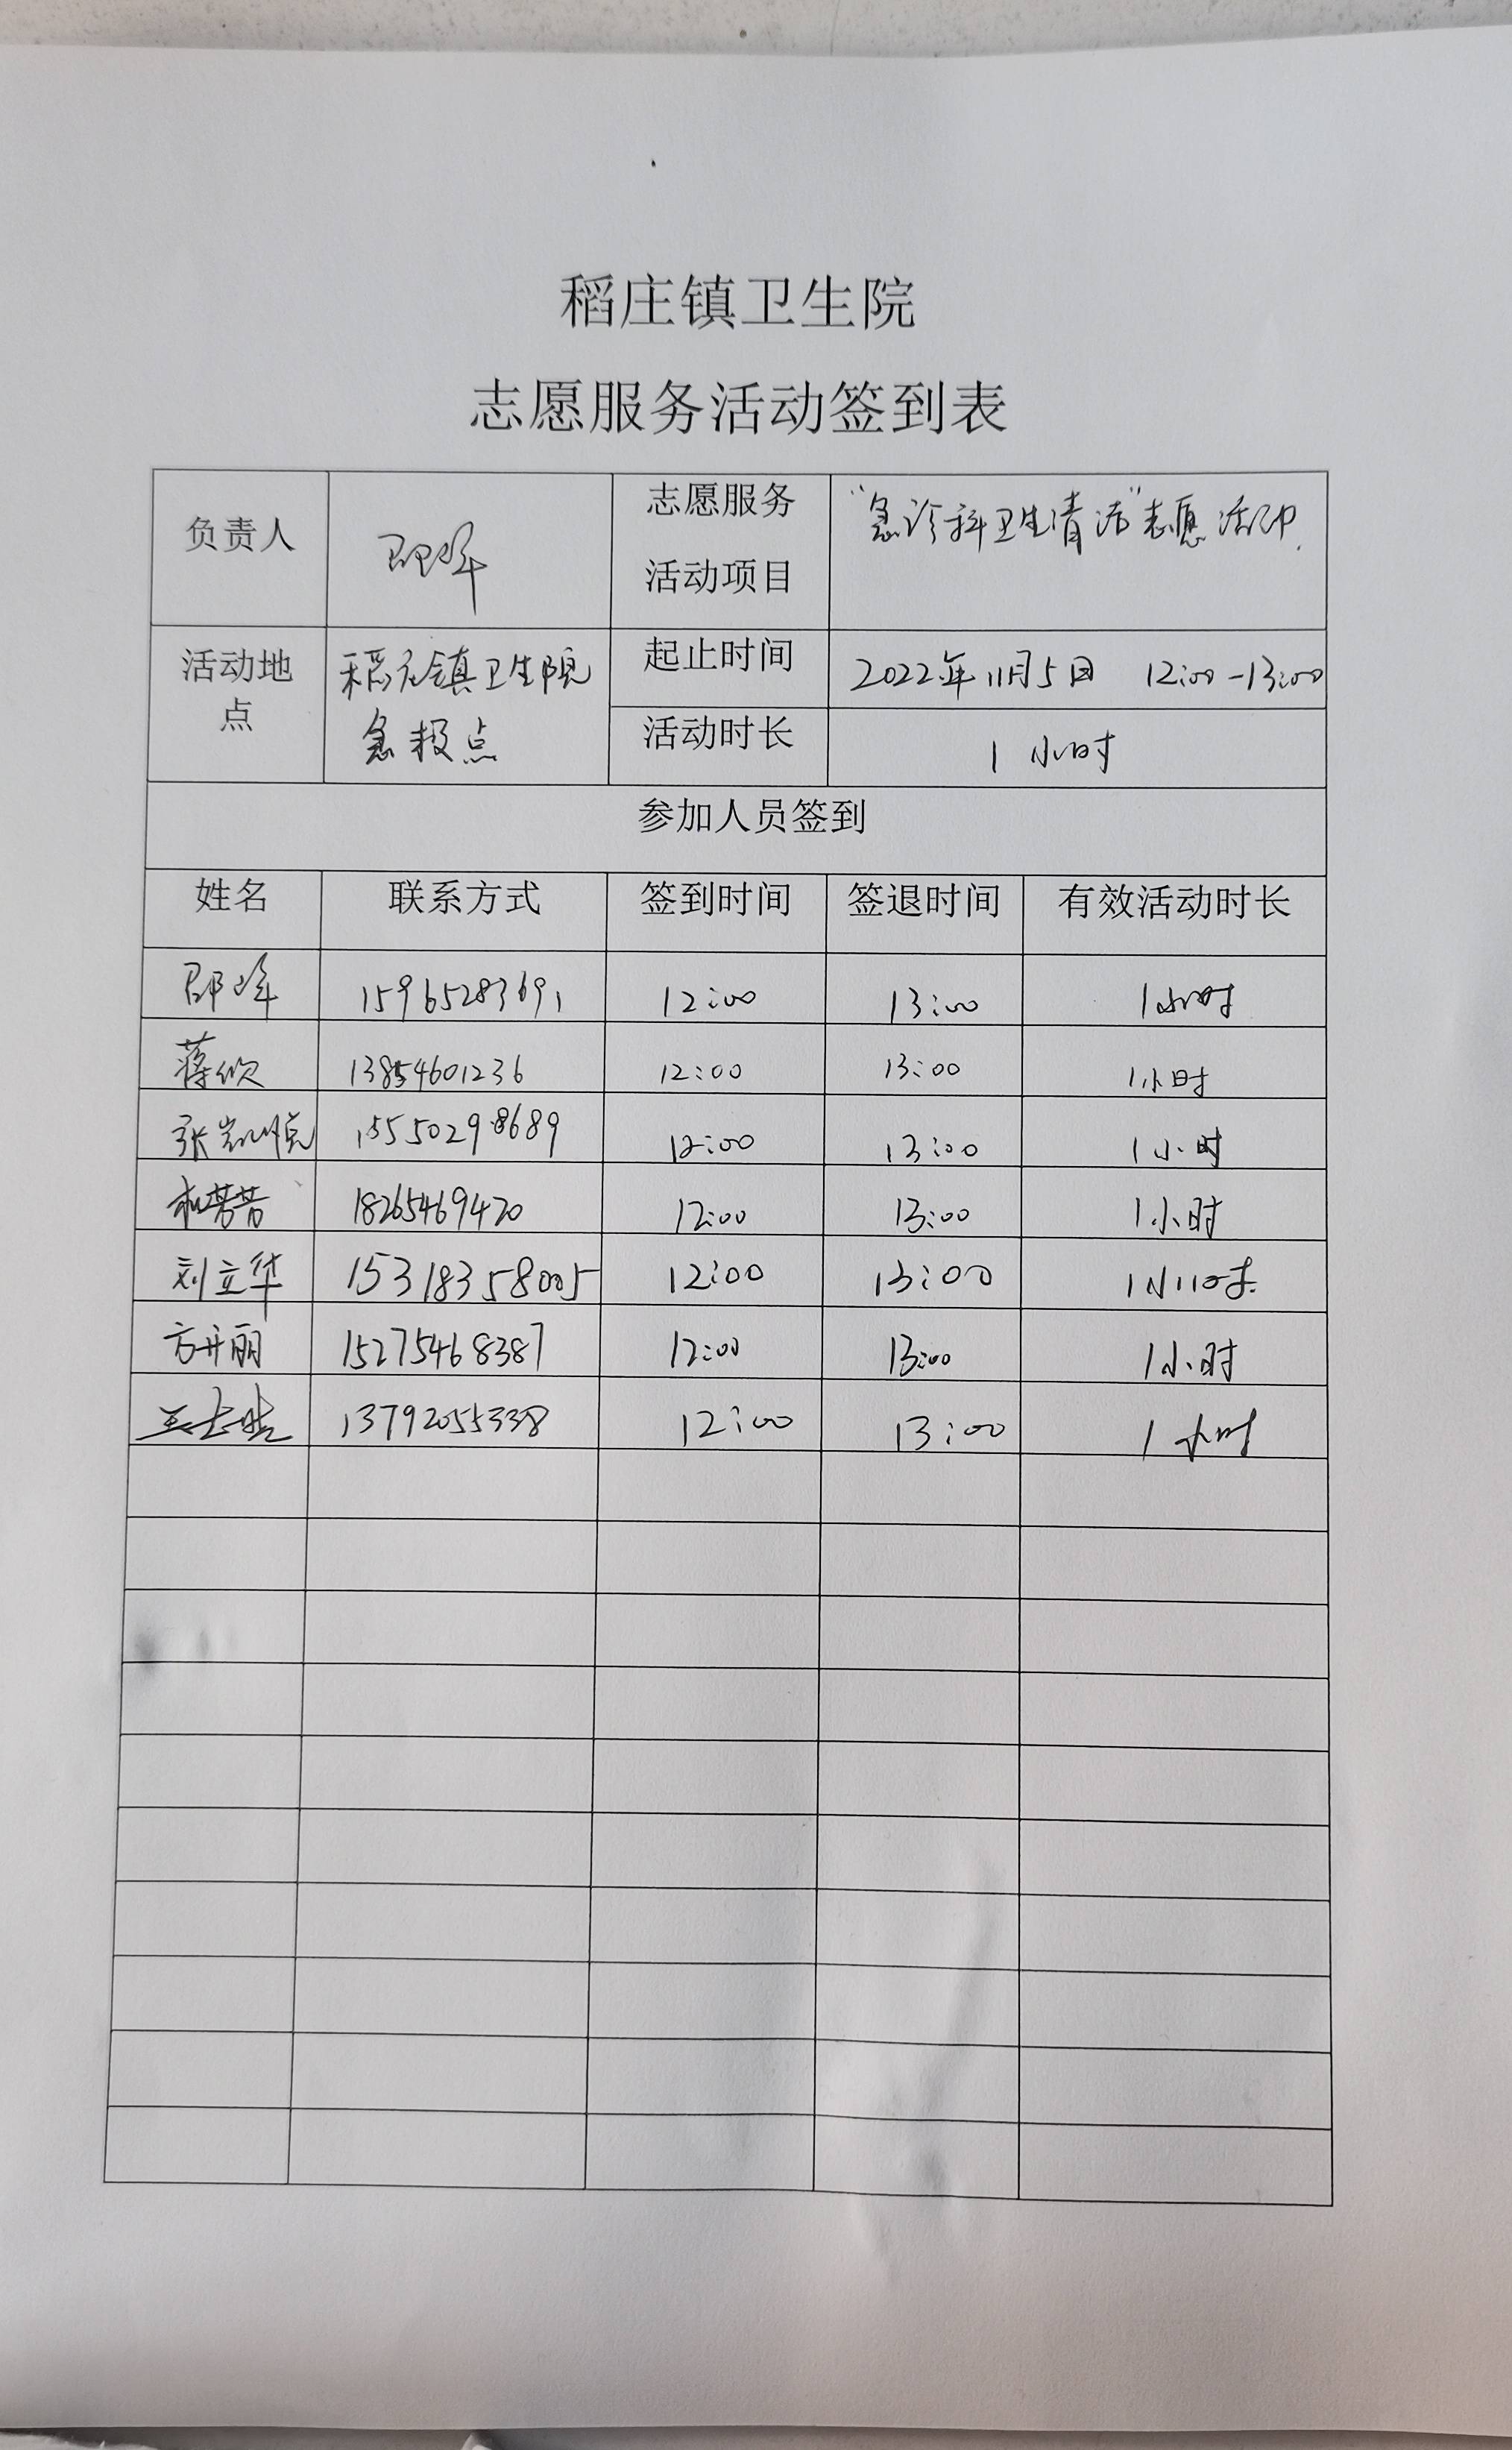 稻庄镇卫生院
志愿服务活动签到表
负责人 邵峰 志愿服务活动项目 "急诊科卫生清洁"志愿活动
活动地点 稻庄镇卫生院急救点 起止时间 2022年11月5日 12:00-13:00
活动时长 1小时
参加人员签到
姓名 联系方式 签到时间 签退时间 有效活动时长
邵峰 15965283691 12:00 13:00 1小时
蒋欣 13854601236 12:00 13:00 1小时
张凯悦 15550298689 12:00 13:00 1小时
芳芳 18265469420 12:00 13:00 1小时
刘立华 15318358005 12:00 13:00 1小时
方开丽 15275468387 12:00 13:00 1小时
13792055338 12:00 13:00 1小时